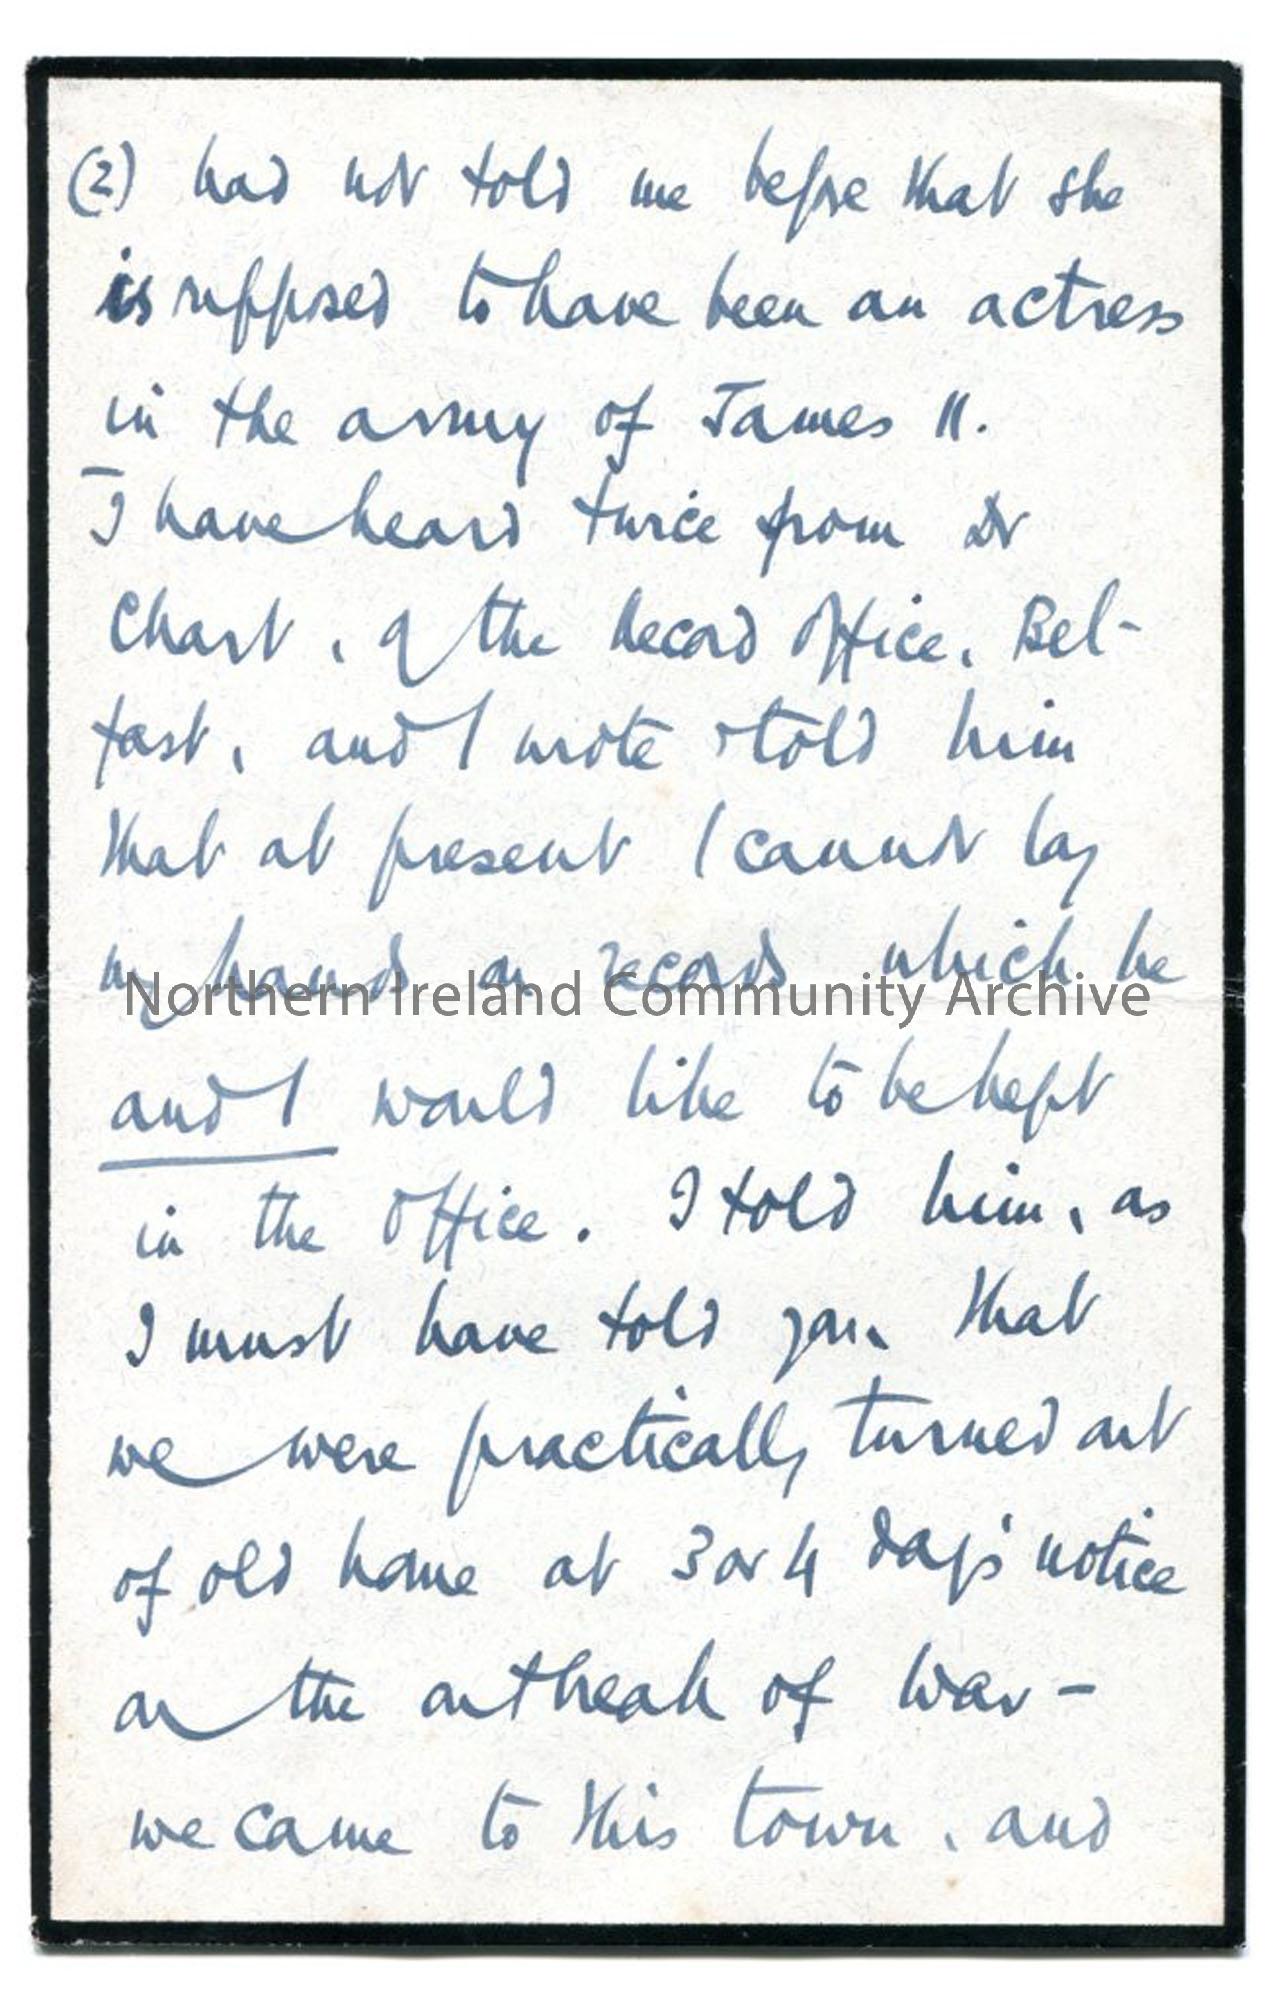 (2) had not told me before that she
is supposed to have been an actress
in the army of James II.
I have heard twice from Dr
Chart, of the Record Office, Bel-
fast, and I wrote & told him
that at present I cannot lay
my hands on records which he
and I would like to be kept
in the Office. I told him, as
I must have told you, that
we were practically turned out
of old home at 3 or 4 days' notice
on the outbreak of war -
we came to this town, and
Northern Ireland Community Archive